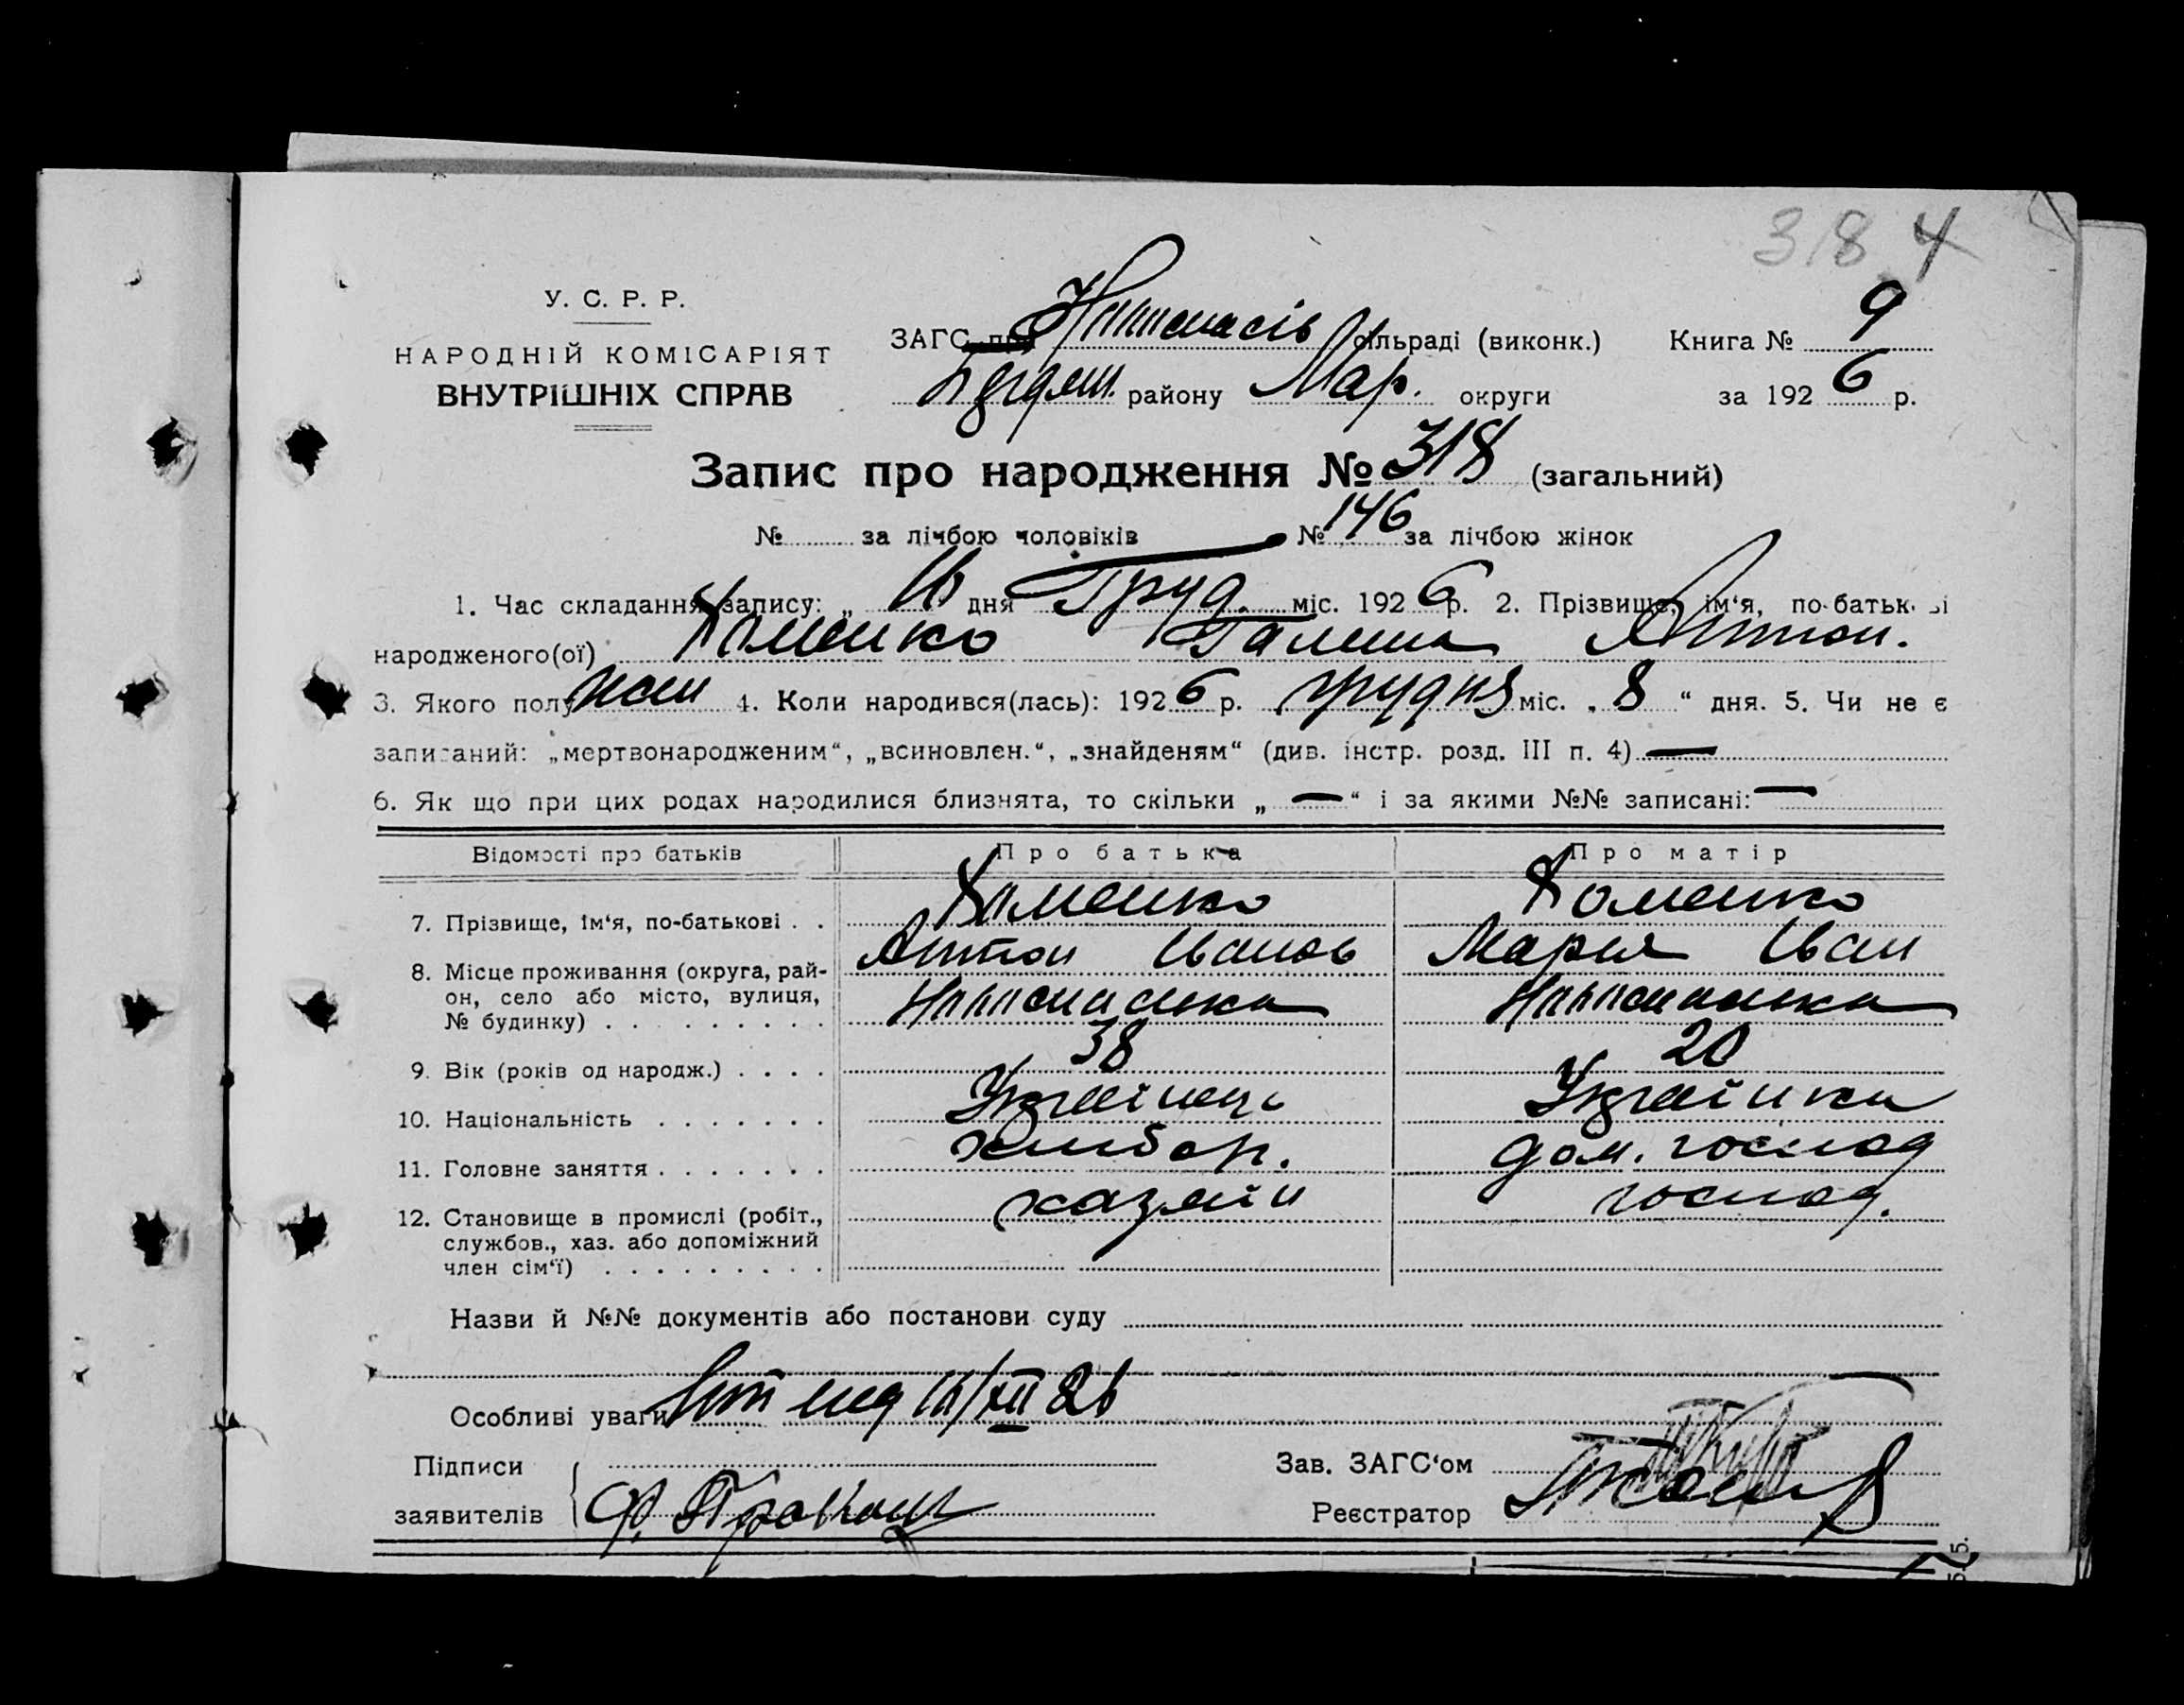 384
У. С. Р. Р.
НАРОДНІЙ КОМІСАРІЯТ
ВНУТРІШНІХ СПРАВ
ЗАГС при сільраді (виконк.) Книга № 9
району Мар. округи за 1926 р.
Запис про народження № 318 (загальний)
№ за лічбою чоловіків № 146 за лічбою жінок
1. Час складання запису: „ 16 дня Груд. міс. 1926 р. 2. Прізвище, ім‘я, по-батьк ві
народженого(ої) Хоменко Галина Антон.
3. Якого полу жін 4. Коли народився(лась): 1926 р. грудня міс. „ 8 “ дня. 5. Чи не є
записаний: „мертвонародженим“, „всиновлен.“, „знайденям“ (див. інстр. розд. III п. 4) —
6. Як що при цих родах народилися близнята, то скільки „ — “ і за якими №№ записані: —
Відомості про батьків Про батька Про матір
7. Прізвище, ім‘я, по-батькові . . Хоменко Хоменко
Антон Іванов Мария Іван
8. Місце проживання (округа, рай-
он, село або місто, вулиця,
№ будинку)
9. Вік (років од народж.) . . . . 38 20
10. Національність Українець Українка
11. Головне заняття хлібор. дом. господ
12. Становище в промислі (робіт., хазяін господ.
службов., хаз. або допоміжний
член сім‘ї)
Назви й №№ документів або постанови суду
Особливі уваги 16/XII 26
Підписи
заявителів
Зав. ЗАГС‘ом
Реєстратор